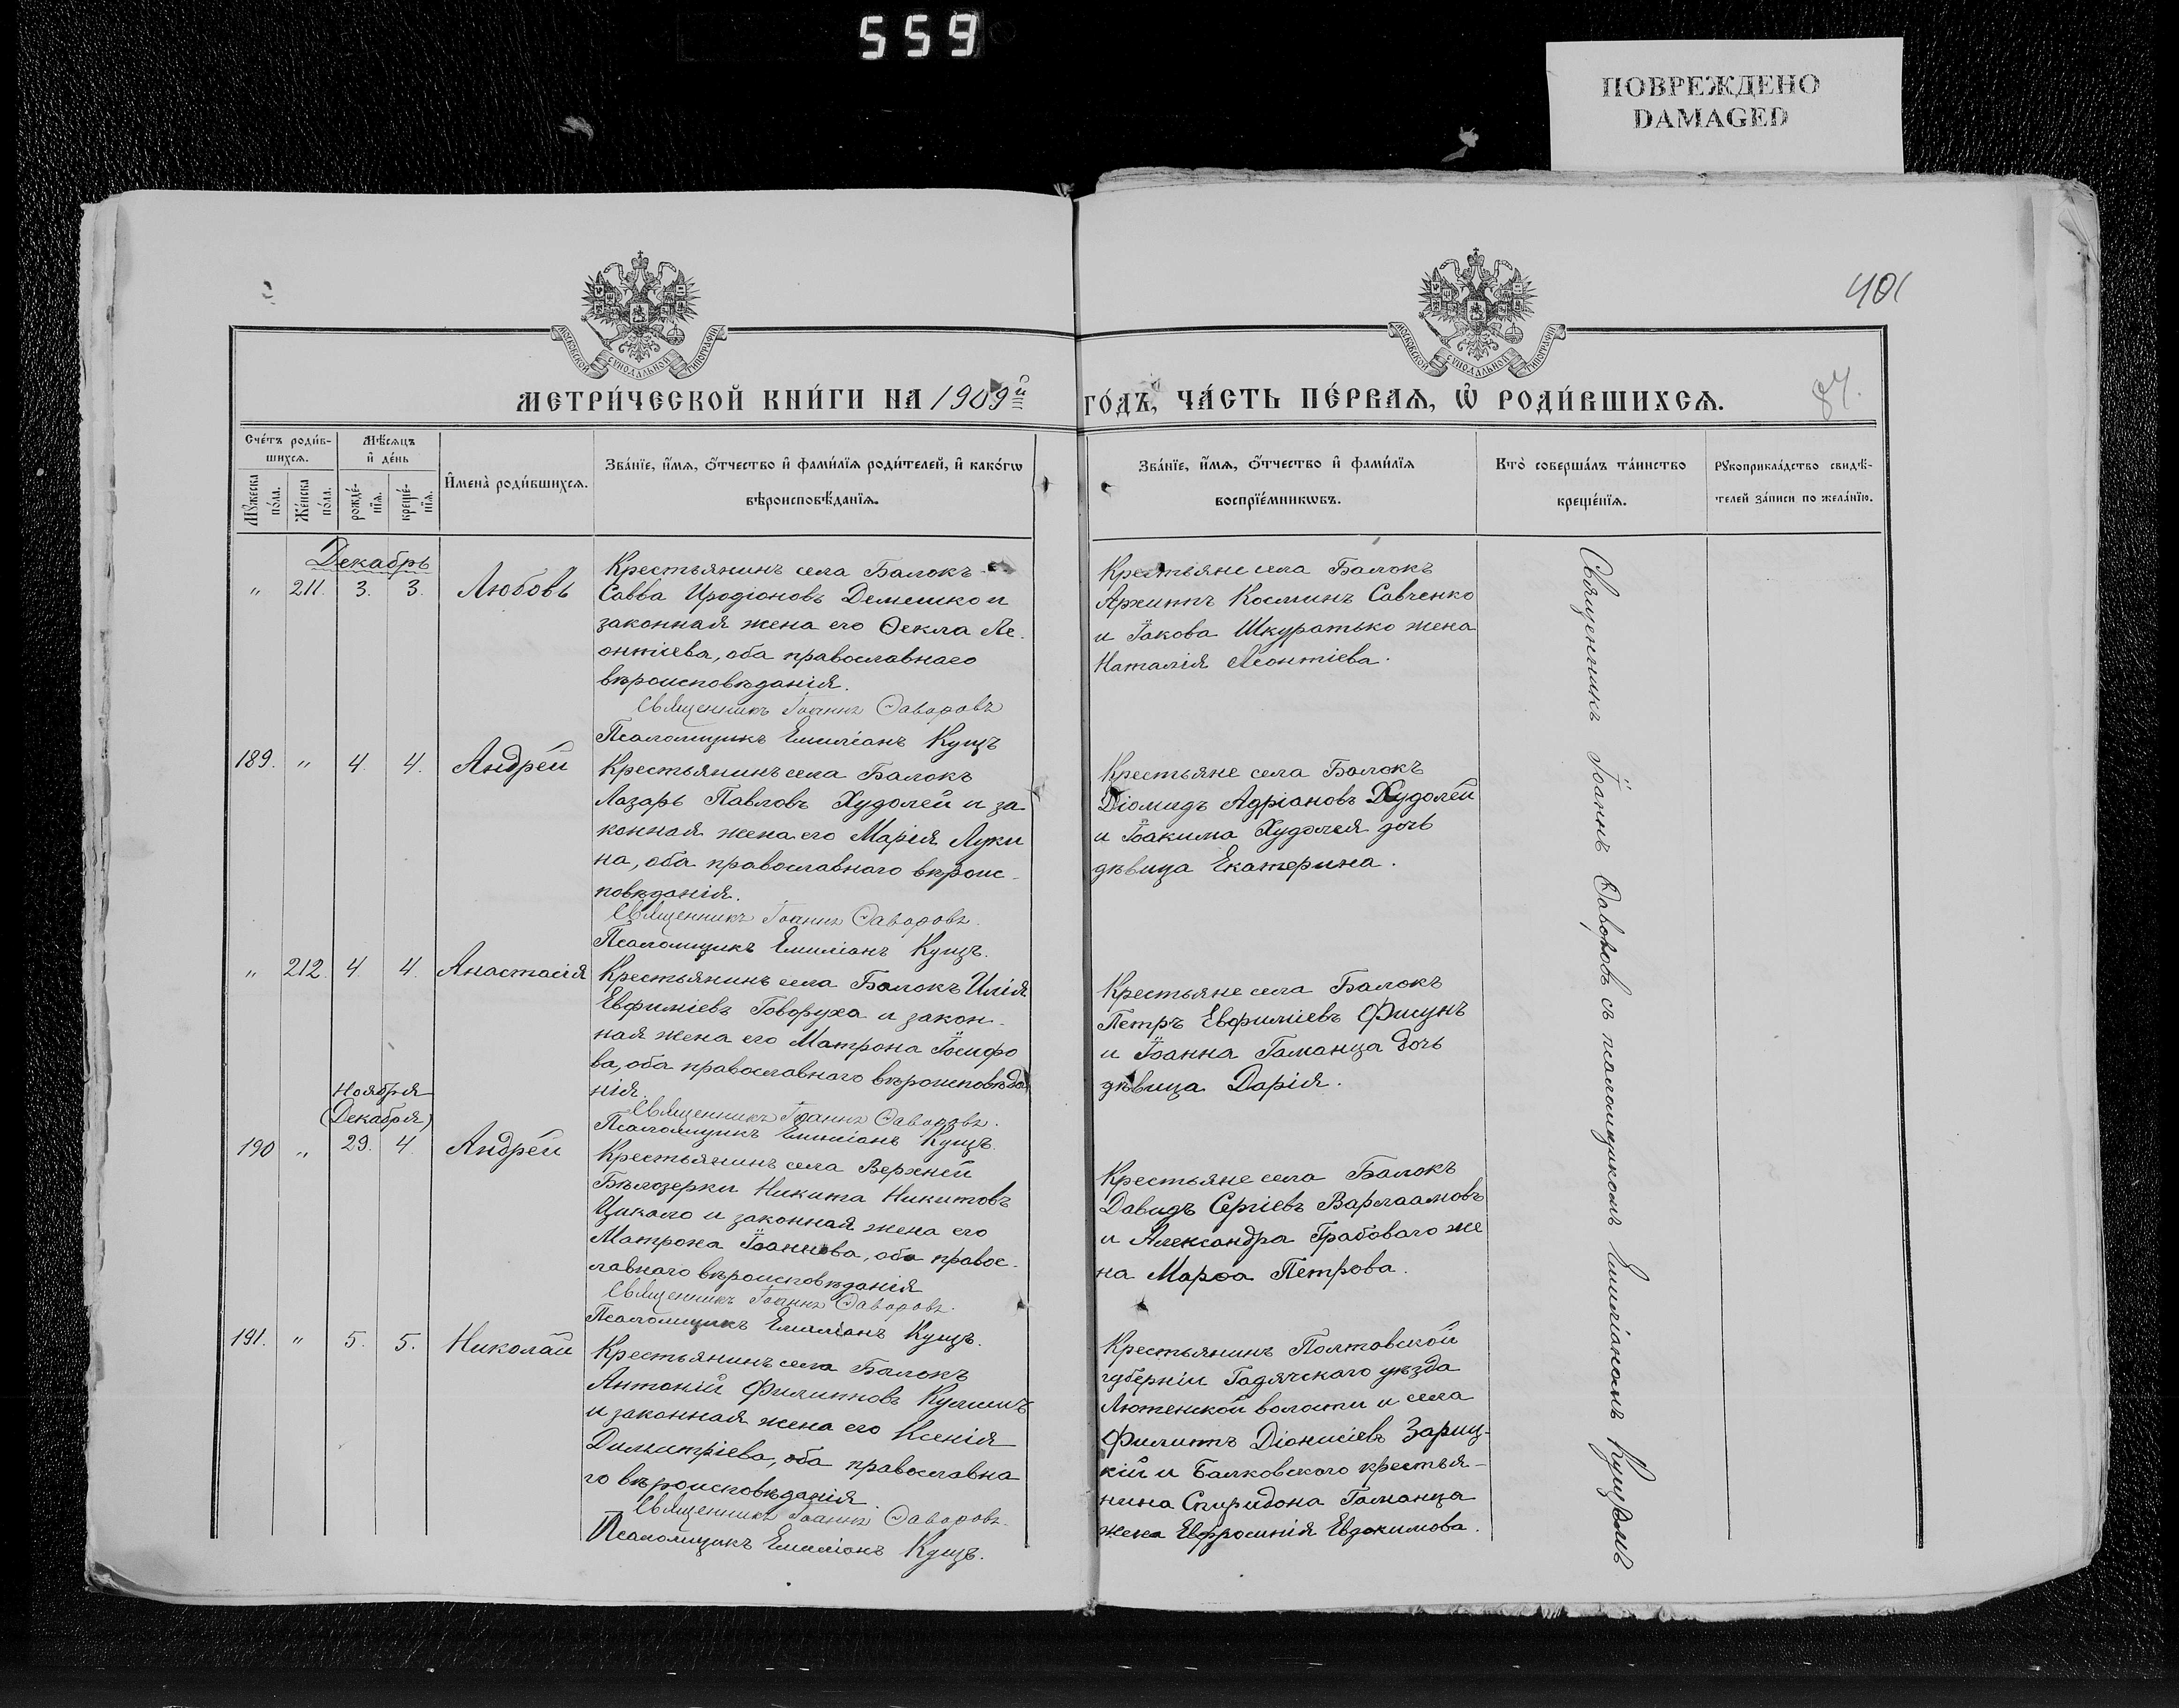 559
ПОВРЕЖДЕНО
DAMAGED
401
87.
МОСКОВСКОЙ СѴНОДАЛЬНОЙ ТИПОГРАФІИ
МОСКОВСКОЙ СѴНОДАЛЬНОЙ ТИПОГРАФІИ
МЕТРИ́ЧЕСКОЙ КНИ́ГИ НА 1909й
ГО́ДЪ, ЧА́СТЬ ПЕ́РВАѦ, Ѡ҆ РОДИ́ВШИХСѦ.
Сче́тъ роди́в-
шихсѧ.
Мꙋ́жеска по́ла.
Же́нска по́ла.
Мѣ́сѧцъ
и҆ де́нь
рожде́-нїѧ.
креще́-нїѧ.
И҆мена̀ роди́вшихсѧ.
Зва́нїе, и҆́мѧ, ѻ҆́тчество и҆ фами́лїѧ роди́телей, и҆ како́гѡ
вѣроисповѣ́данїѧ.
Зва́нїе, и҆́мѧ, ѻ҆́тчество и҆ фами́лїѧ
воспрїе́мникѡвъ.
Кто̀ соверша́лъ та́инство
креще́нїѧ.
Рꙋкоприкла́дство свидѣ́-
телей за́писи по жела́нїю.
Декабрь
" 211. 3. 3. Любовь
Крестьянинъ села Балокъ
Савва Иродіоновъ Демешко и
законная жена его Ѳекла Ле-
онтіева, оба православнаго
вѣроисповѣданія.
Священникъ Іоаннъ Ѳаворовъ
Псаломщикъ Емиліанъ Кущъ
Крестьяне села Балокъ
Архиппъ Косминъ Савченко
и Іакова Шкуратько жена
Наталія Леонтіева.
189. " 4. 4. Андрей
Крестьянинъ села Балокъ
Лазарь Павловъ Худолей и за-
конная жена его Марія Луки
на, оба православнаго вѣроис-
повѣданія.
Священникъ Іоаннъ Ѳаворовъ.
Псаломщикъ Емиліанъ Кущъ.
Крестьяне села Балокъ
Діомидъ Адріановъ Худолей
и Іоакима Худолея дочь
дѣвица Екатерина.
" 212. 4 4. Анастасія
Крестьянинъ села Балокъ Илія
Евфиміевъ Говоруха и закон-
ная жена его Матрона Іосифо
ва, оба православнаго вѣроисповѣда
нія.
Священникъ Іоаннъ Ѳаворовъ.
Псаломщикъ Емиліанъ Кущъ.
Крестьяне села Балокъ
Петръ Евфиміевъ Фисунъ
и Іоанна Гаманца дочь
дѣвица Дарія.
Ноября
(Декабря)
190 " 29. 4. Андрей
Крестьянинъ села Верхней
Бѣлозерки Никита Никитовъ
Цикало и законная жена его
Матрона Іоаннова, оба правос-
лавнаго вѣроисповѣданія
Священникъ Іоаннъ Ѳаворовъ.
Псаломщикъ Емиліанъ Кущъ.
Крестьяне села Балокъ
Давидъ Сергіевъ Варлаамовъ
и Александра Грабоваго же
на Марѳа Петрова.
191. " 5. 5. Николай
Крестьянинъ села Балокъ
Антоній Филипповъ Кулишъ
и законная жена его Ксенія
Димитріева, оба православна
го вѣроисповѣданія.
Священникъ Іоаннъ Ѳаворовъ.
Псаломщикъ Емиліанъ Кущъ.
Крестьянинъ Полтавской
губерніи Гадячскаго уѣзда
Лютенской волости и села
Филиппъ Діонисіевъ Зариц-
кій и Балковскаго крестья-
нина Спиридона Гаманца
жена Евфросинія Евдокимова.
Священникъ Іоаннъ Ѳаворовъ съ псаломщикомъ Емиліаномъ Кущемъ